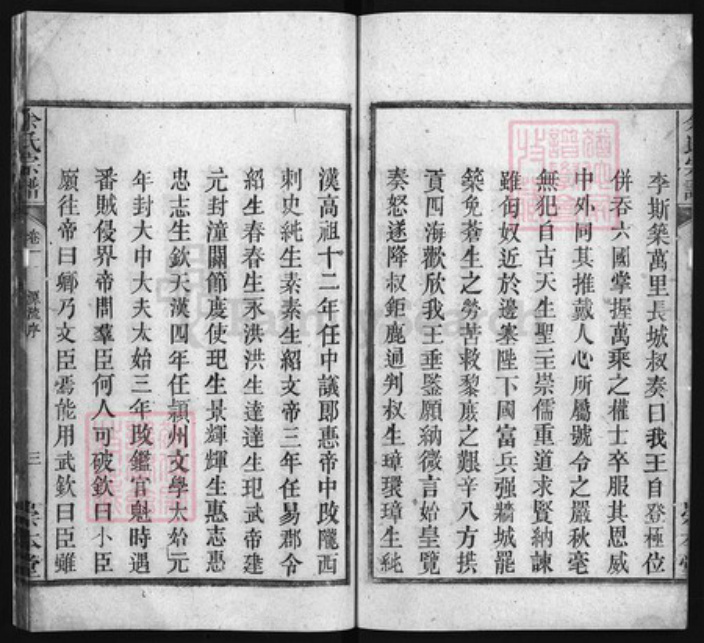 李斯築萬里長城叔奏曰我王自登極位
併吞六國掌握萬乘之權士卒服其恩威
中外同其推戴人心所屬號令之嚴秋毫
無犯自古天生聖主崇儒重道求賢納諫
雖匈奴近於邊塞陛下國富兵强牆城罷
築免蒼生之勞苦救黎庶之艱辛八方拱
貢四海歡欣我王垂鑒願納微言始皇覽
奏怒遂降叔鉅鹿通判叔生璋環璋生純
漢高祖十二年任中議郎惠帝中改隴西
刺史純生素素生紹文帝三年任易郡令
紹生春春生永洪洪生達達生玘武帝建
元封潼關節度使玘生景輝輝生惠志惠
忠志生欽天漢四年任潁州文學太始元
年封大中大夫太始三年改鑑官魁時遇
番賊侵界帝問羣臣何人可破欽曰卜臣
願往帝曰鄉乃文臣焉能用武欽曰臣雖
余氏宗譜
卷一
三
崇本堂
FamilySearch